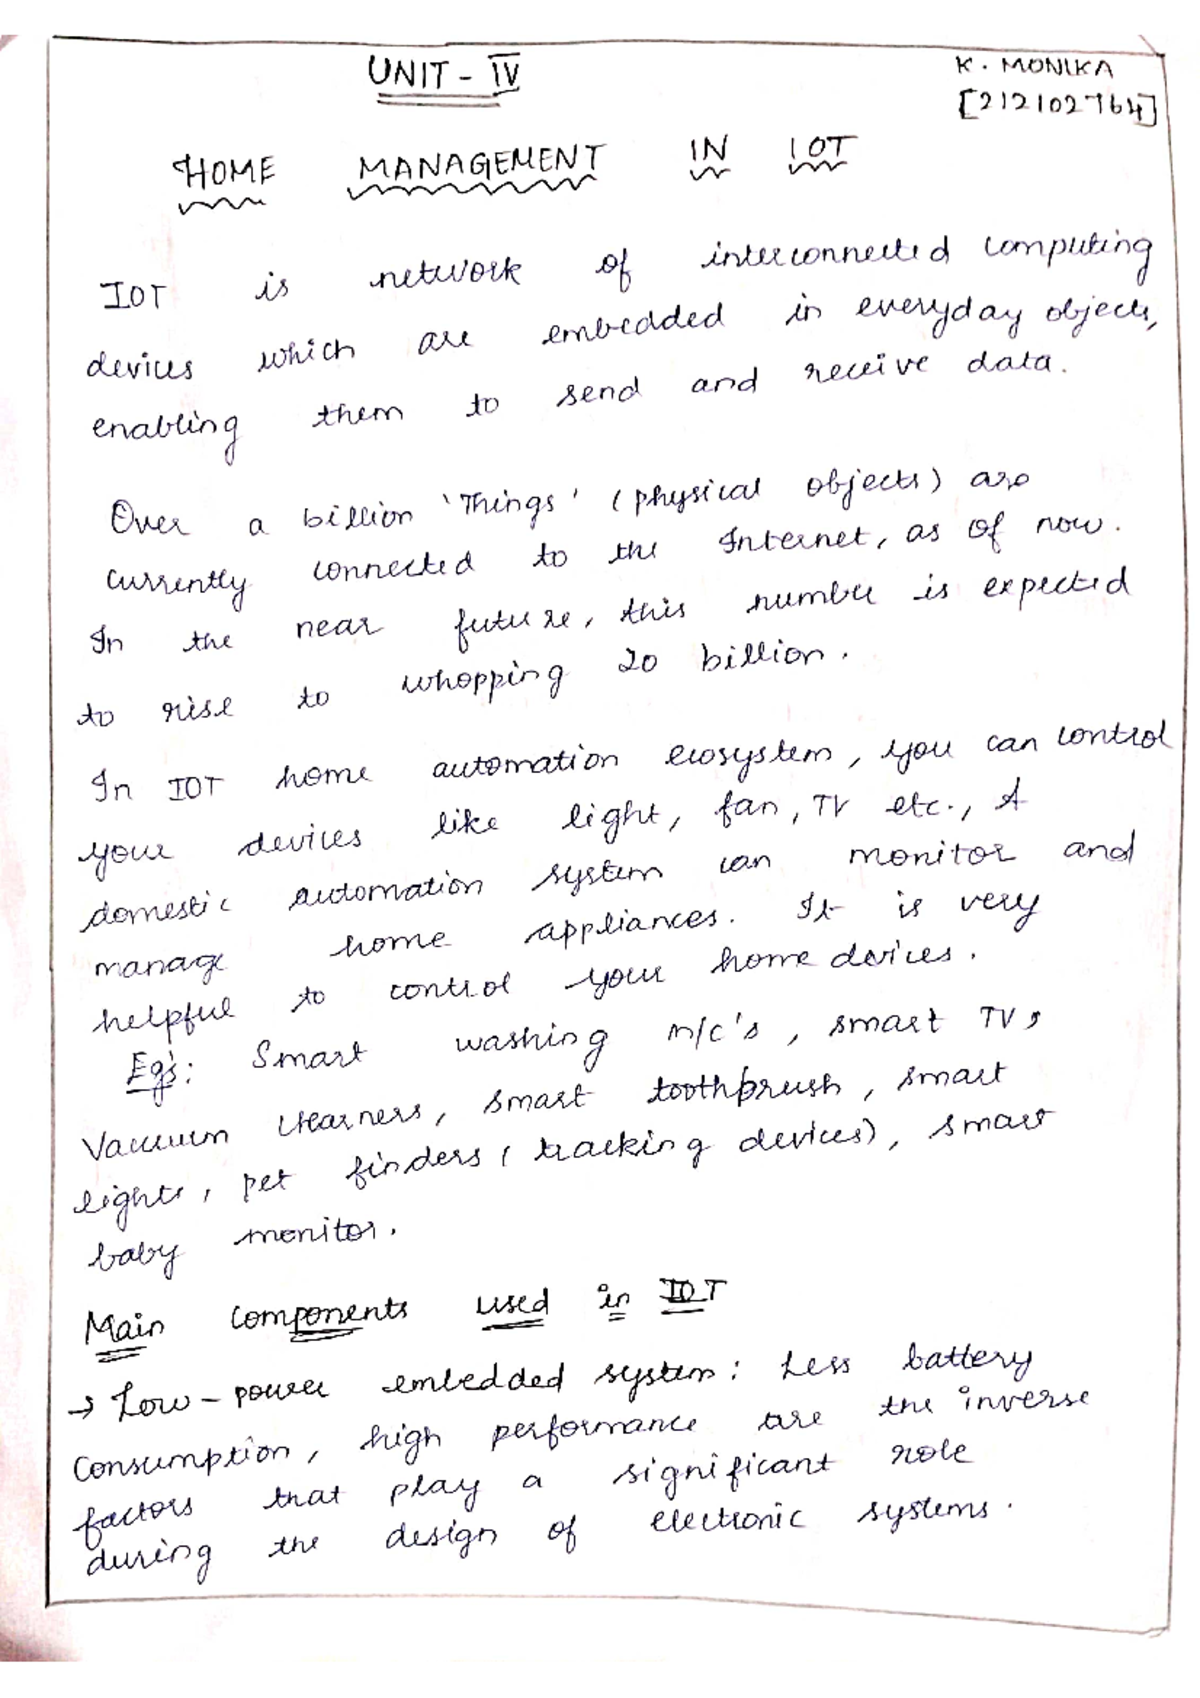 UNIT - IV
K. MONIKA
[212102764]
HOME MANAGEMENT IN IOT
IOT is network of interconnected computing
devices which are embedded in everyday objects,
enabling them to send and receive data.
Over a billion 'Things' (physical objects) are
currently connected to the Internet, as of now.
In the near future, this number is expected
to rise to whopping 20 billion.
In IOT home automation ecosystem, you can control
your devices like light, fan, TV etc., A
domestic automation system can monitor and
manage home appliances. It is very
helpful to control your home devices.
Eg's: Smart washing m/c's, smart TVs
Vacuum cleaners, smart toothbrush, smart
lights, pet finders (tracking devices), smart
baby monitor.
Main components used in IOT
→ Low-power embedded system: Less battery
consumption, high performance are the inverse
factors that play a significant role
during the design of electronic systems.